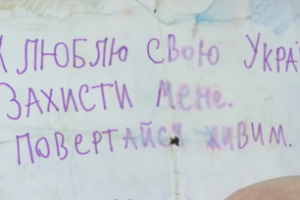 Я ЛЮБЛЮ СВОЮ УКРАЇ
ЗАХИСТИ МЕНЕ.
ПОВЕРТАЙСЯ ЖИВИМ.